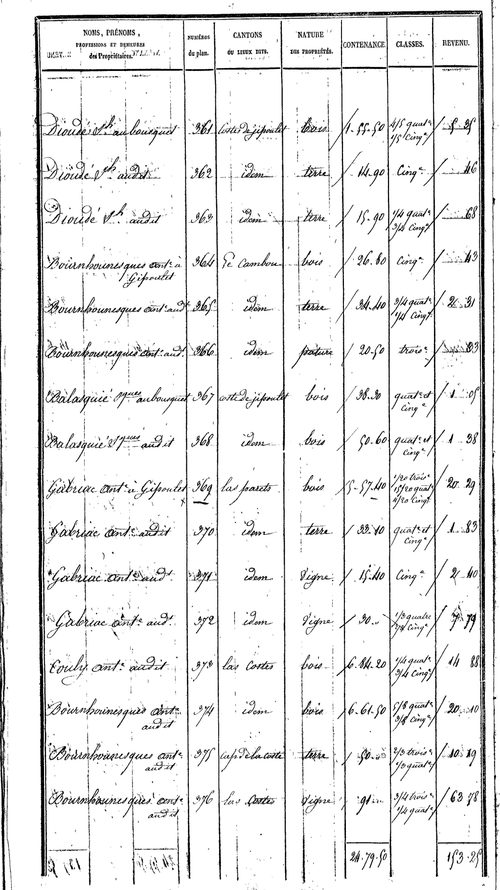 NOMS, PRÉNOMS,
PROFESSIONS ET DEMEURES
des Propriétaires.
NUMÉROS
du plan.
CANTONS
OU LIEUX DITS.
NATURE
DES PROPRIÉTÉS.
CONTENANCE.
CLASSES.
REVENU.
Dioudé Jh au bousquet 361 costes de jipoulet bois 1.55.50 4/5 quat.e 1/5 cinq.e 5 35
Dioudé Jh audit 362 idem terre 14.90 Cinq.e 46
Dioudé Jh audit 363 idem terre 15.90 1/4 quat.e 3/4 cinq.e 68
Bournhounesques ant.e à Gipoulet 364 Le Cambou bois 26.80 Cinq.e 43
Bournhounesques ant.e aud.t 365 idem terre 34.40 3/4 quat.e 1/4 cinq.e 2 31
Bournhounesques ant.e aud.t 366 idem pature 20.50 trois.e 83
Balasquié Jques au bousquet 367 coste de jipoulet bois 38.30 quat.e et cinq.e 1 05
Balasquié Jques audit 368 idem bois 50.60 quat.e et cinq.e 1 38
Gabriac ant.e à Gipoulet 369 las parets bois 5.57.40 1/20 trois.e 15/20 quat.e 4/20 cinq.e 20 29
Gabriac ant.e audit 370 idem terre 33.10 quat.e et cinq.e 1 83
Gabriac ant.e aud.t 371 idem Vigne 15.40 Cinq.e 2 40
Gabriac ant.e aud.t 372 idem Vigne 30 1/3 quatre 2/3 cinq.e 7 79
ant.e audit 373 las costes bois 6.14.20 1/4 quat.e 3/4 cinq.e 14 88
Bournhounesques ant.e audit 374 idem bois 6.61.50 5/8 quat.e 3/8 cinq.e 20 10
Bournhounesques ant.e audit 375 cap de la coste terre 50 2/3 trois.e 1/3 quat.e 10 19
Bournhounesques ant.e audit 376 las costes Vigne 91 3/4 trois.e 1/4 quat.e 63 78
24.79.50 153.25